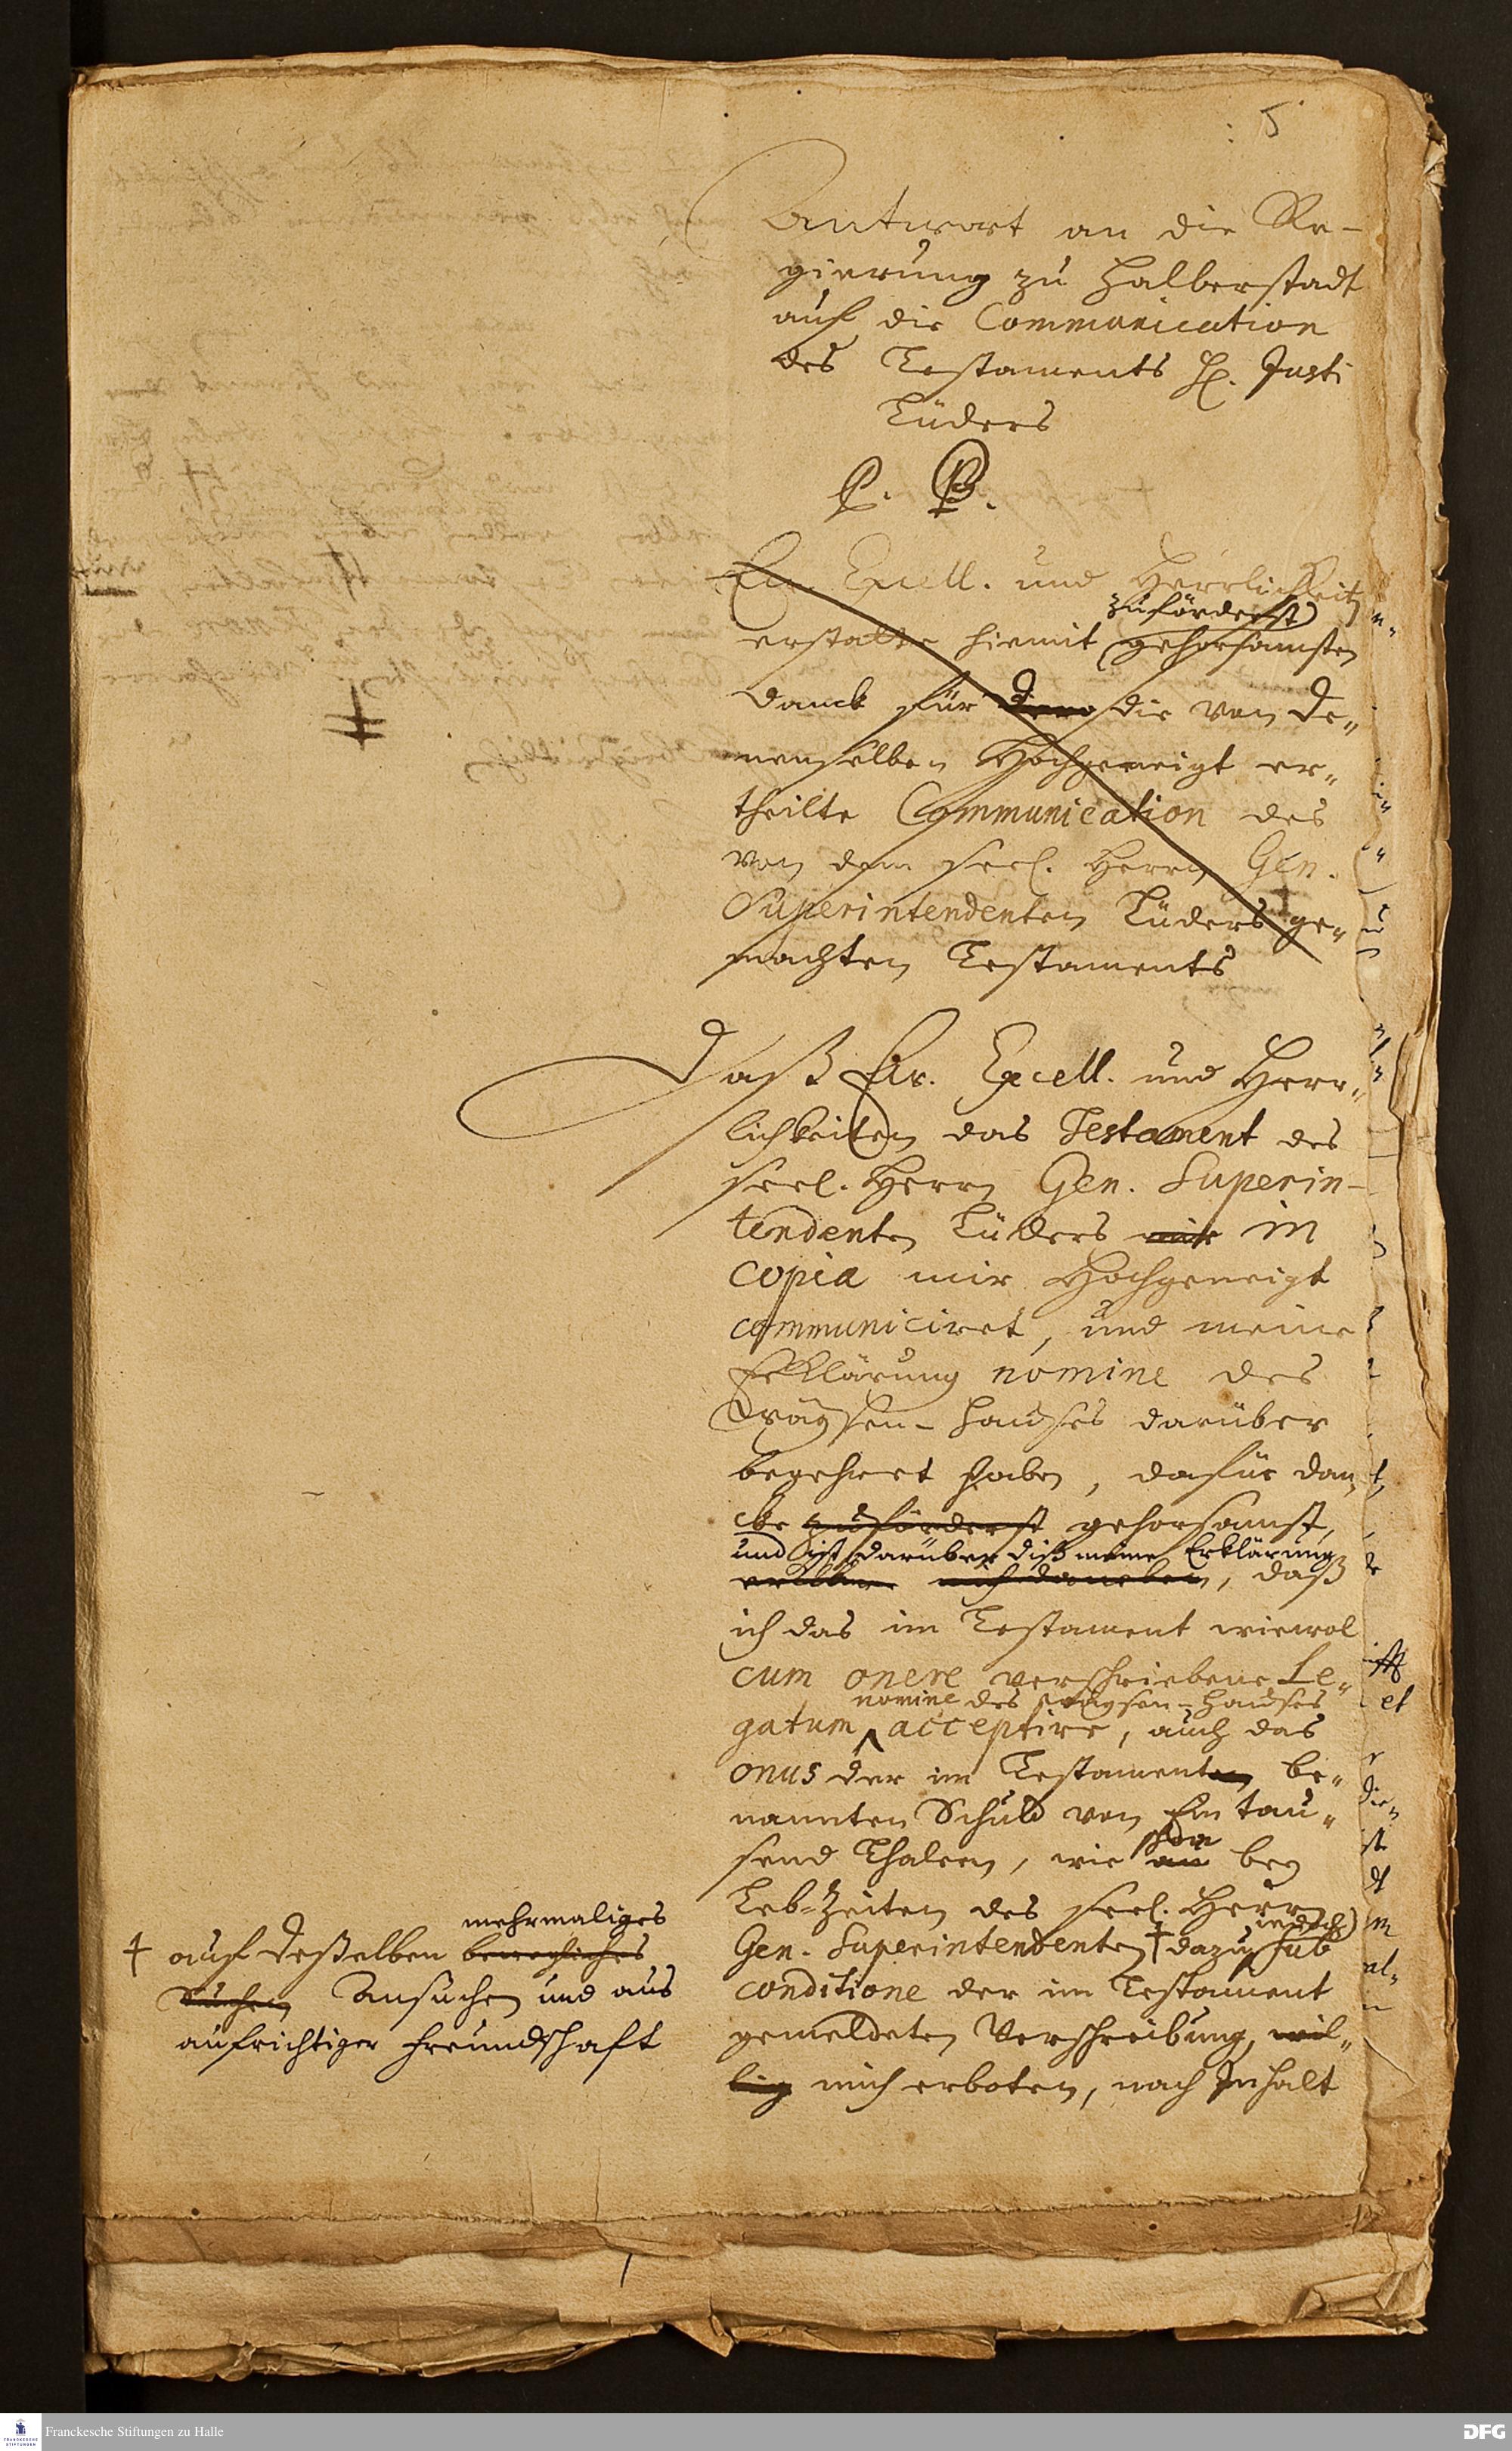 5
Antwort an die Re-
gierung zu Halberstadt
auf die Communication
des Testaments H. Justi
Lüders
P. P.
Ew. Excell. und Herrlichkeit
zuförderst
erstatte hiemit gehorsamsten
Danck für dero die von De„
nenselben Hochgeneigt er„
theilte Communication des
von dem seel. Herrn Gen.
Superintendenten Lüders ge„
machten Testaments
Daß Ew. Excell. und Herr„
lichkeiten das Testament des
seel. Herrn Gen. Superin-
tendenten Lüders mir in
copia mir Hochgeneigt
communiciret, und meine
Erklärung nomine des
Wäysen-Hauses darüber
begehret haben, dafür dan„
cke zuförderst gehorsamst,
und ist darüber diß meine Erklärung
mich daneben, daß
ich das im Testament wiewol
cum onere verschriebene Le„
nomine des Wäysen-Hauses
gatum acceptire, auch das
onus der im Testamenten be„
nannten Schuld von Ein tau„
schon
send Thalern, wie bey
Leb-Zeiten des seel. Herrn
Gen. Superintendenten † dazu sub
conditione der im Testament
gemeldeten Verschreibung, wil„
lig mich erboten, nach Inhalt
mehrmaliges
† auf deßelben bewegliches
Ansuchen und aus
aufrichtiger Freundschaft
Franckesche Stiftungen zu Halle
DFG